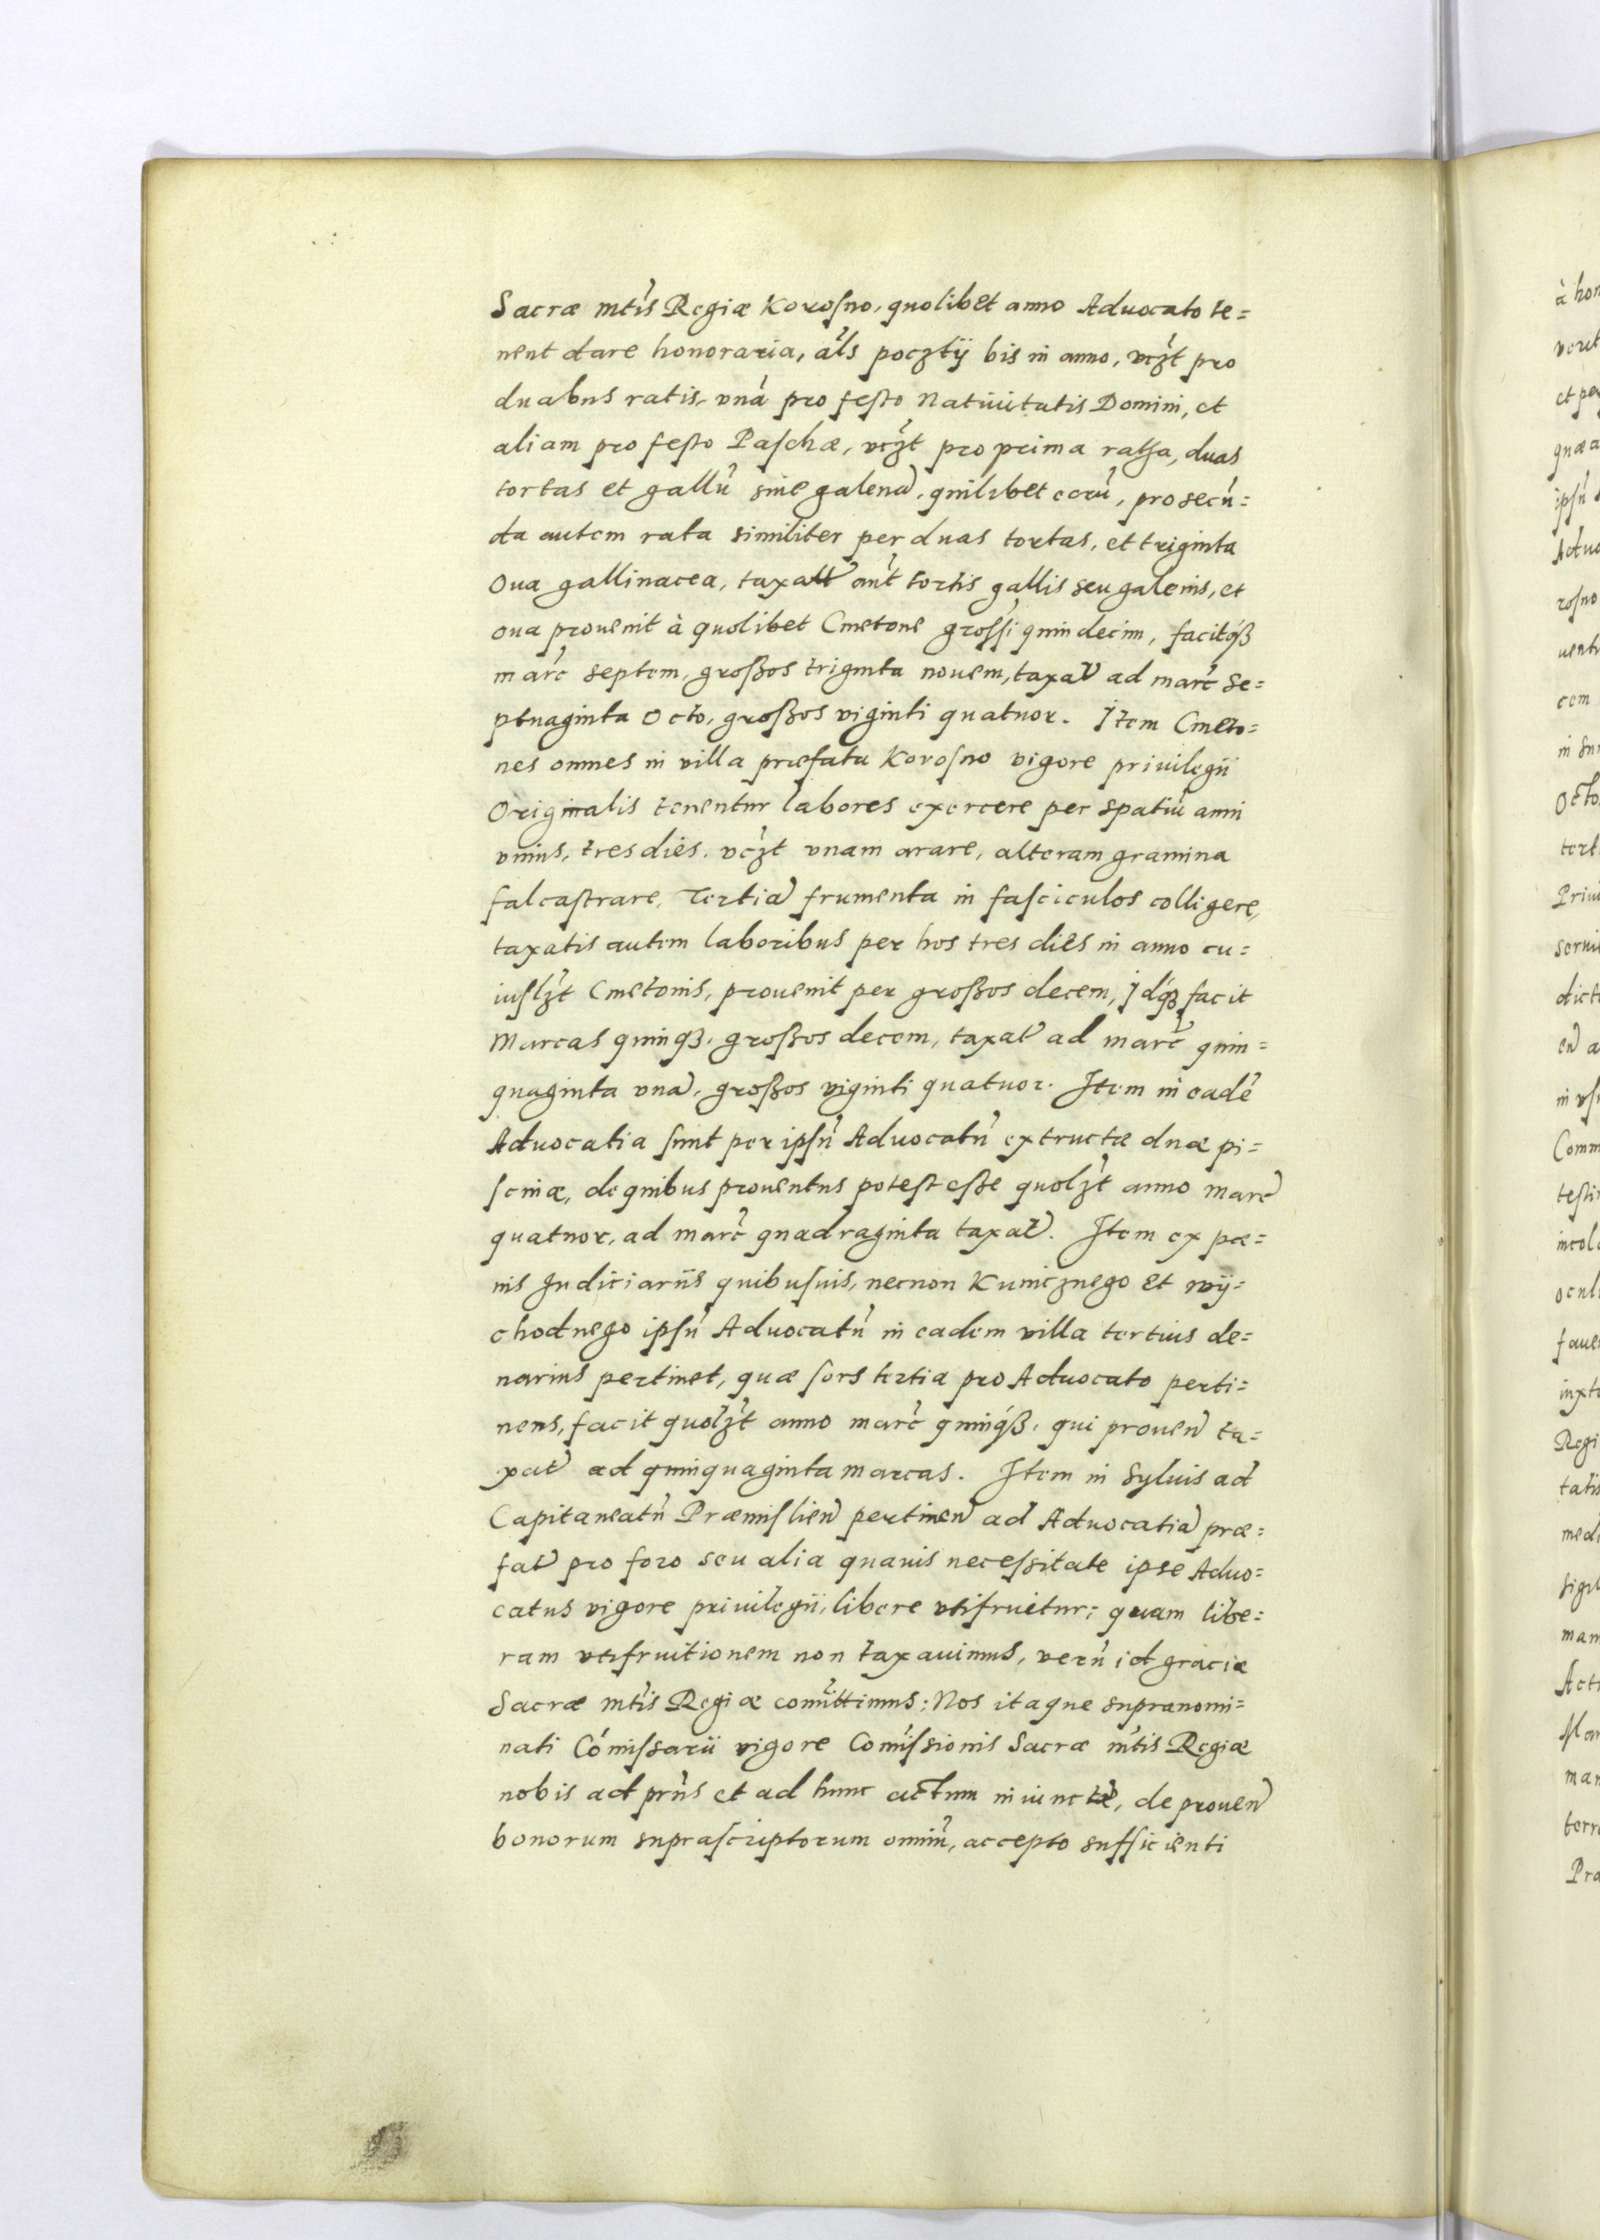 Sacræ mt̃is Regiæ Korosno, quolibet anno Aduocato te=
nent dare honoraria, al̃s pocztÿ bis in anno, vcz̃t pro
duabus ratis, vnã pro festo Natiuitatis Domini, et
aliam pro festo Paschæ, vcz̃t pro prima ratha, duas
tortas et gallũ siue galenã, quilibet eorũ, pro secũ=
da autem rata similiter per duas tortas, et triginta
oua gallinacea, taxatĩ aũt tortis gallis seu galenis, et
oua prouenit à quolibet Cmetone grossi quindecim, facitq́ꝫ
marc̃ septem, grossos triginta nouem, taxat̃ ad marc̃ se=
ptuaginta octo, grossos viginti quatuor. Item Cmeto=
nes omnes in villa præfata Korosno vigore priuilegii
Originalis tenentur labores exercere per spatiũ anni
vnius, tres diès. vcz̃t vnam arare, alteram gramina
falcastrare, Tertiã frumenta in fasciculos colligere,
taxatis autem laboribus per hos tres diès in anno cu=
iuslz̃t Cmetonis, prouenit per grossos decem, Idq́ꝫ facit
Marcas quinqꝫ, grossos decem, taxat̃ ad marc̃ quin=
quaginta vnã, grossos viginti quatuor. Item in eadẽ
Aduocatia sunt per ipsũ Aduocatũ extructæ duæ pi=
scinæ, de quibus prouentus potest esse quolz̃t anno marc̃
quatuor, ad marc̃ quadraginta taxat̃. Item ex pœ=
nis Judiciariis quibusuis, necnon Kunicznego et wÿ=
chodnego ipsũ Aduocatũ in eadem villa tertius de=
narius pertinet, quæ sors tertia pro Aduocato perti=
nens, facit quolz̃t anno marc̃ quinq́ꝫ, qui prouen̄ ta=
xat̃ ad quinquaginta marcas. Item in Syluis ad
Capitaneatũ Præmislien̄ pertinen̄ ad Aduocatiã præ=
fat̃ pro foro seu alia quauis necessitate ipse Aduo=
catus vigore priuilegii, libere vtifruetur; quam libe=
ram vtifruitionem non taxauimus, verũ id graciæ
Sacræ mt̃is Regiæ comĩttimus; Nos itaque supranomi=
nati Cõmissarii vigore Comĩssionis Sacræ mt̃is Regiæ
nobis ad prñs et ad hunc actum iniunctæ̃, de prouen̄
bonorum suprascriptorum omniũ, accepto sufficienti